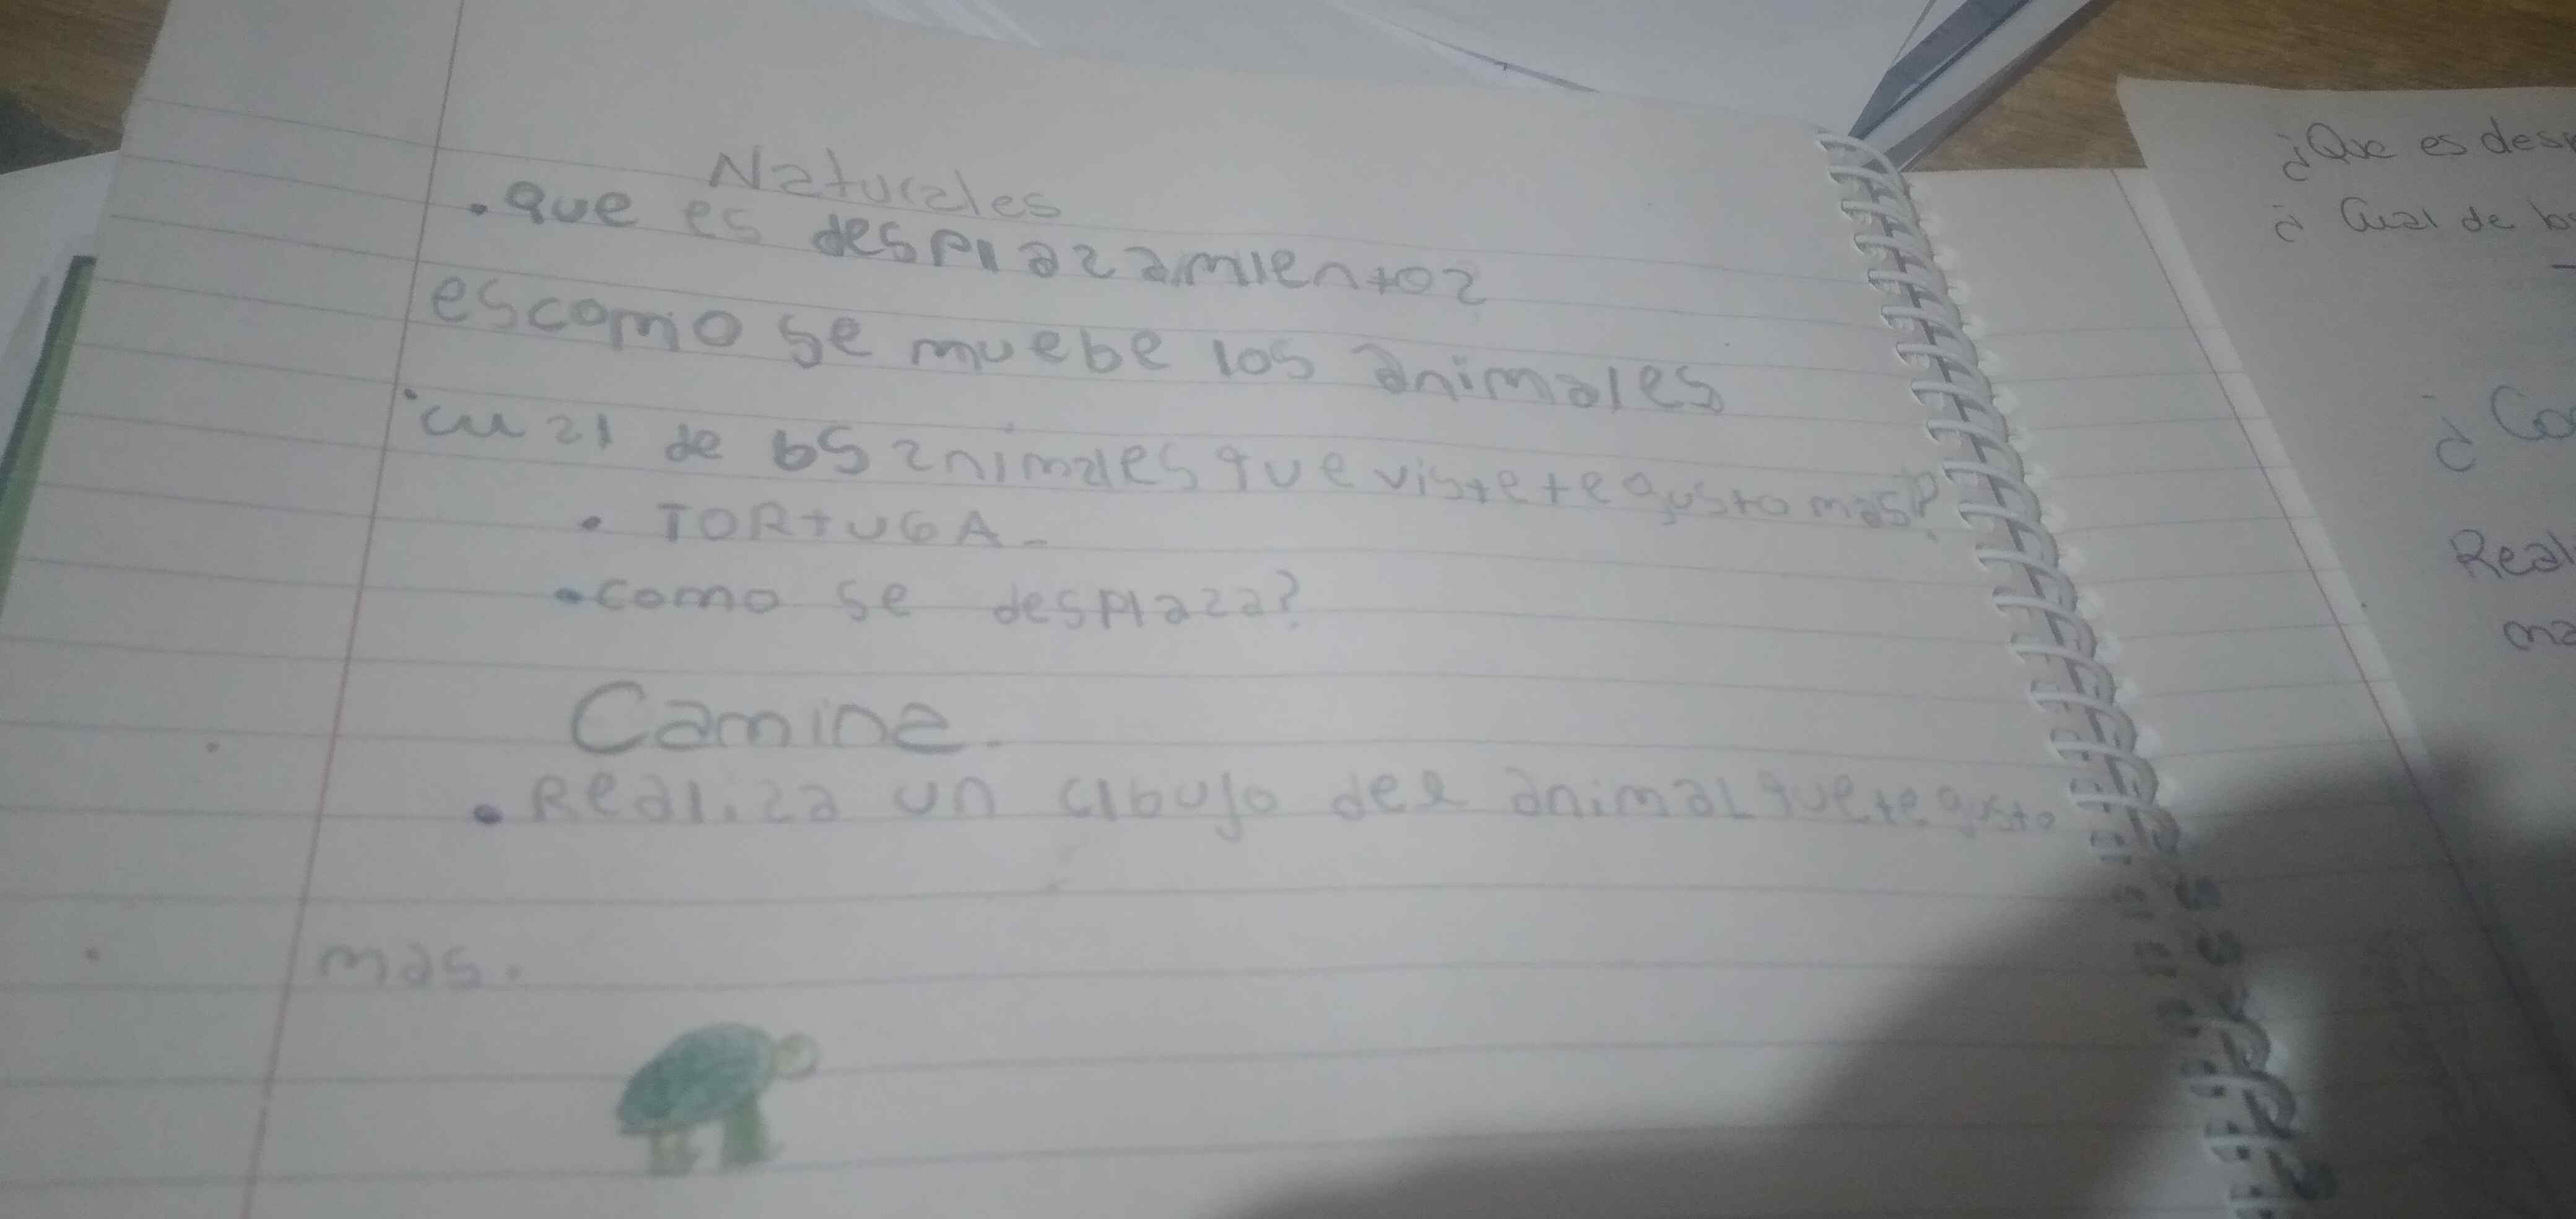 Naturales
. que es desplazamiento?
es como se muebe los animales
. cual de los animales que viste te gusto mas?
. TORtUGA -
. como se desplaza?
Camina.
. Realiza un dibujo del animal que te gusto
mas.
¿Que es desp
¿ Cual de lo
¿ Co
Reali
ma